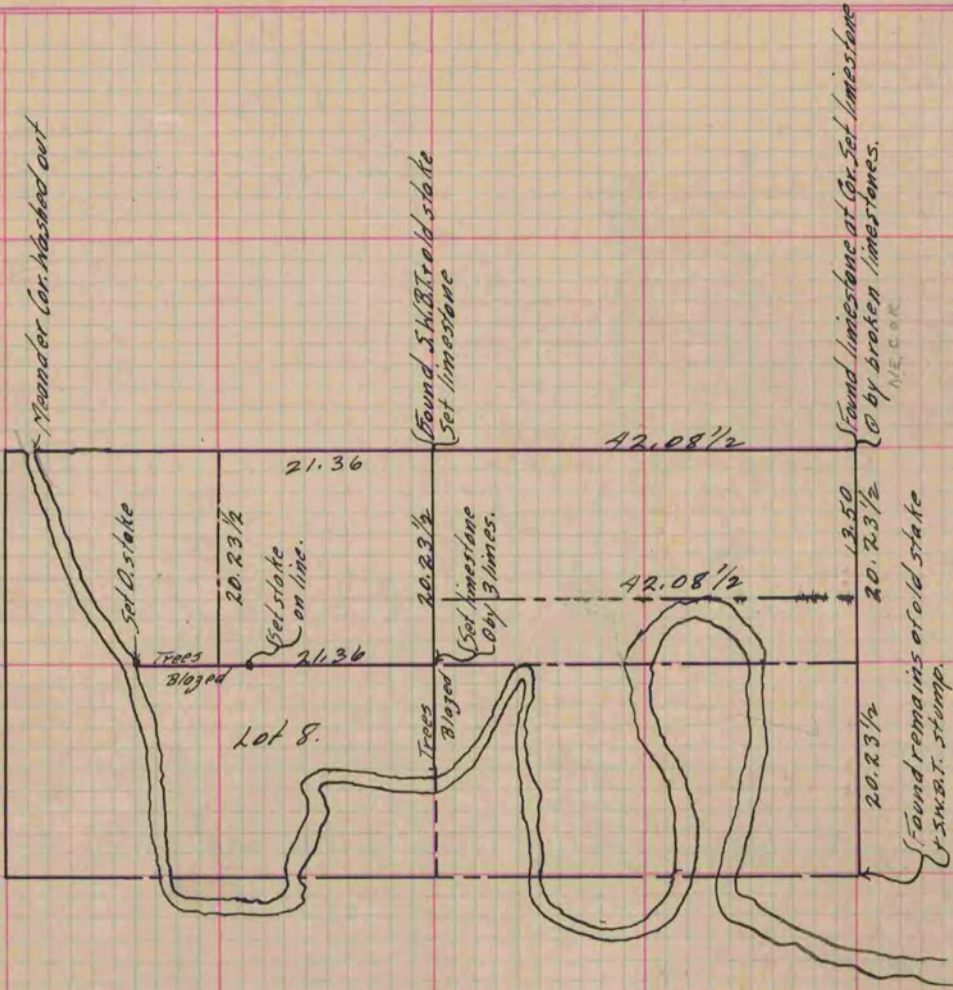 Meander Cor. Washed out
Found S.W.B.T. & old stake
Set limestone
Found limestone at Cor. Set limestone
@ by broken limestones.
N.E. COR
42.08 1/2
21.36
Set O. stake
20.23 1/2
Set stake
on line.
20.23 1/2
Set limestone
@ by 3 limes.
42.08 1/2
13.50
20.23 1/2
Trees
Blazed
21.36
Trees
Blazed
Lot 8.
20.23 1/2
Found remains of old stake
& S.W.B.T. stump.